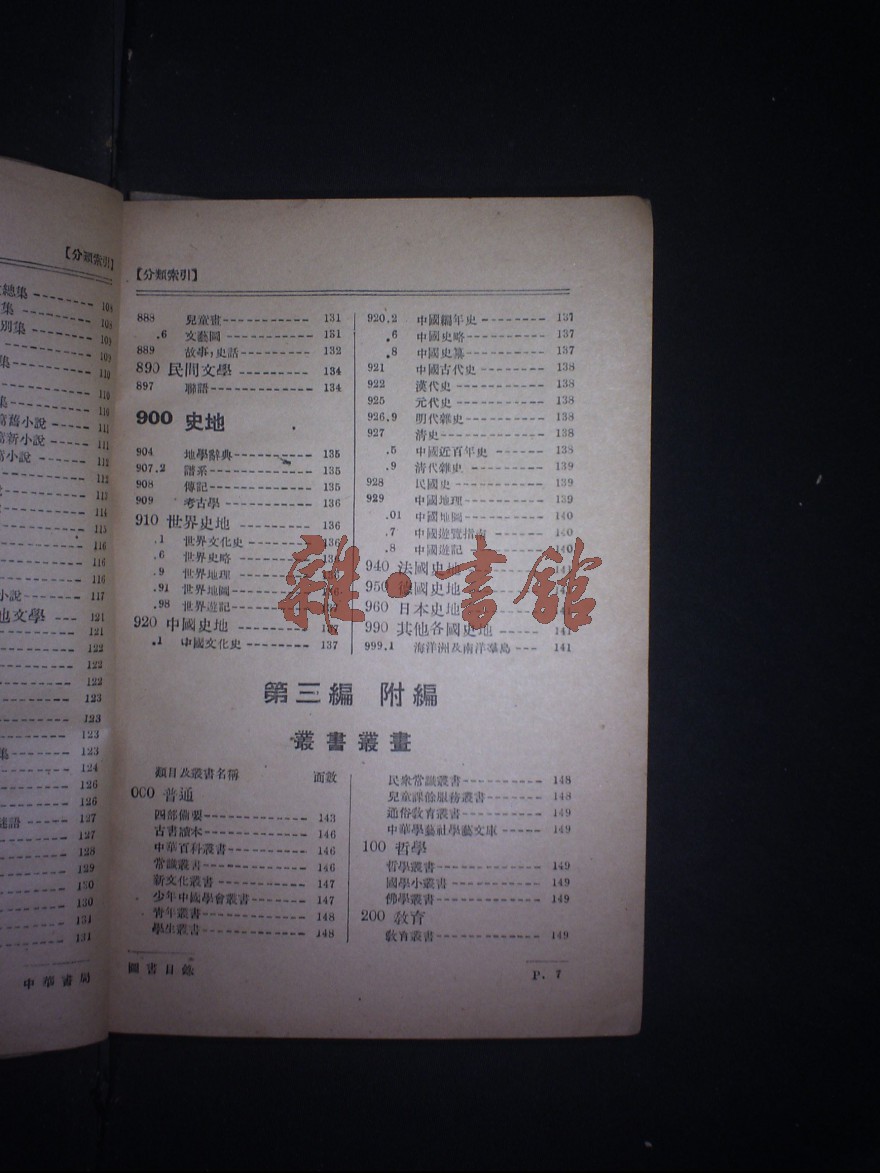 【分類索引】
總集 108
集 108
別集 108
109
109
集 110
110
集 110
舊小說 111
新小說 111
小說 112
112
113
114
115
116
116
116
小說 117
地文學 121
121
122
122
122
123
123
123
集 123
124
126
126
127
127
128
129
130
130
131
131
中華書局
【分類索引】
888 兒童畫 131
.6 文藝圖 131
889 故事，史話 132
890 民間文學 134
897 聯語 134
900 史地
904 地學辭典 135
907.2 譜系 135
908 傳記 135
909 考古學 136
910 世界史地 136
.1 世界文化史 136
.6 世界史略
.9 世界地理
.91 世界地圖
.98 世界遊記
920 中國史地 137
.1 中國文化史 137
920.2 中國編年史 137
.6 中國史略 137
.8 中國史纂 137
921 中國古代史 138
922 漢代史 138
925 元代史 138
926.9 明代雜史 138
927 清史 138
.5 中國近百年史 138
.9 清代雜史 139
928 民國史 139
929 中國地理 139
.01 中國地圖 140
.7 中國遊覽指南 140
.8 中國遊記 140
940 法國史地 141
950 德國史地
960 日本史地
990 其他各國史地 141
999.1 海洋洲及南洋羣島 141
雜·書館
第三編 附編
叢書叢畫
類目及叢書名稱 面數
000 普通
四部備要 143
古書讀本 146
中華百科叢書 146
常識叢書 146
新文化叢書 147
少年中國學會叢書 147
青年叢書 148
學生叢書 148
民衆常識叢書 148
兒童課餘服務叢書 148
通俗教育叢書 149
中華學藝社學藝文庫 149
100 哲學
哲學叢書 149
國學小叢書 149
佛學叢書 149
200 教育
教育叢書 149
圖書目錄
P. 7